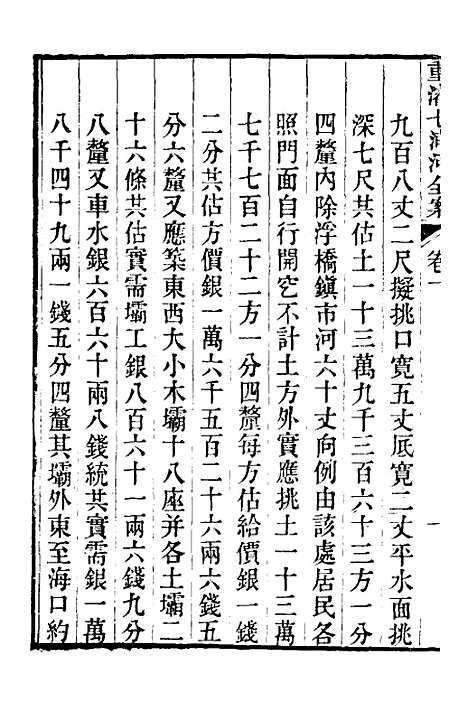 重濬七浦河全案 卷一
九百八丈二尺擬挑口寬五丈底寬二丈平水面挑
深七尺共估土一十三萬九千三百六十三方一分
四釐內除浮橋鎮市河六十丈向例由該處居民各
照門面自行開空不計土方外實應挑土一十三萬
七千七百二十二方一分四釐每方估給價銀一錢
二分共估方價銀一萬六千五百二十六兩六錢五
分六釐又應築東西大小木壩十八座并各土壩二
十六條共估實需壩工銀八百六十一兩六錢九分
八釐又車水銀六百六十兩八錢統共實需銀一萬
八千四十九兩一錢五分四釐其壩外東至海口約